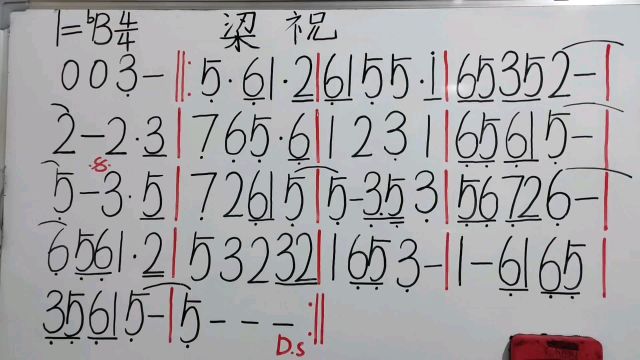 1=ᵇB 4/4 梁祝
0 0 3 - ‖: 5 · 6 1 · 2 | 6 1 5 5 · 1 | 6 5 3 5 2 - |
2 - 2 · 3 | 7 6 5 · 6 | 1 2 3 1 | 6 5 6 1 5 - |
.S.
5 - 3 · 5 | 7 2 6 1 5 | 5 - 3 5 3 | 5 6 7 2 6 - |
6 5 6 1 · 2 | 5 3 2 3 2 | 1 6 5 3 - | 1 - 6 1 6 5 |
3 5 6 1 5 - | 5 - - - :‖
D.s